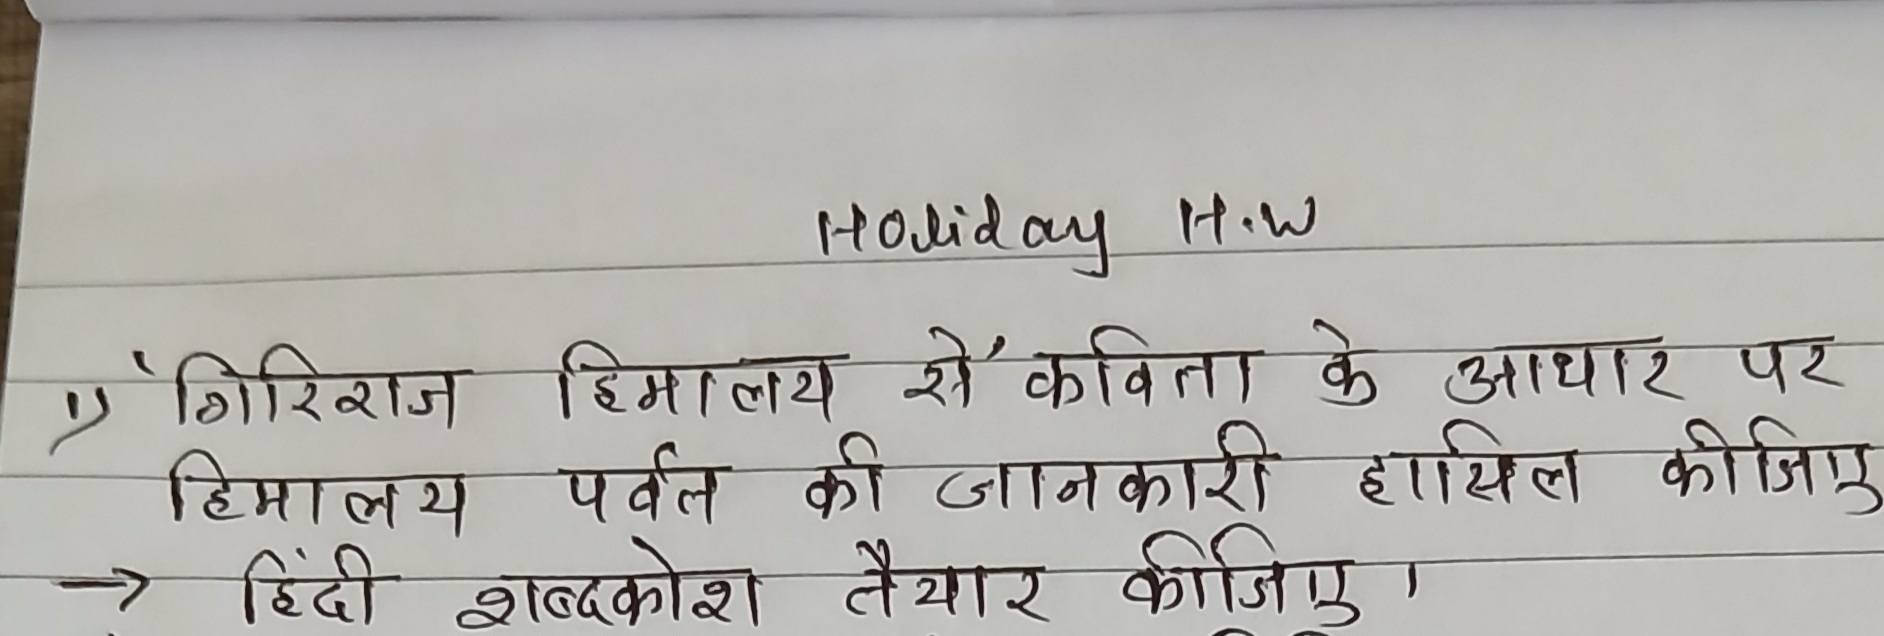 Holiday H.W
1) 'गिरिराज हिमालय से' कविता के आधार पर
हिमालय पर्वत की जानकारी हासिल कीजिए
→ हिंदी शब्दकोश तैयार कीजिए।